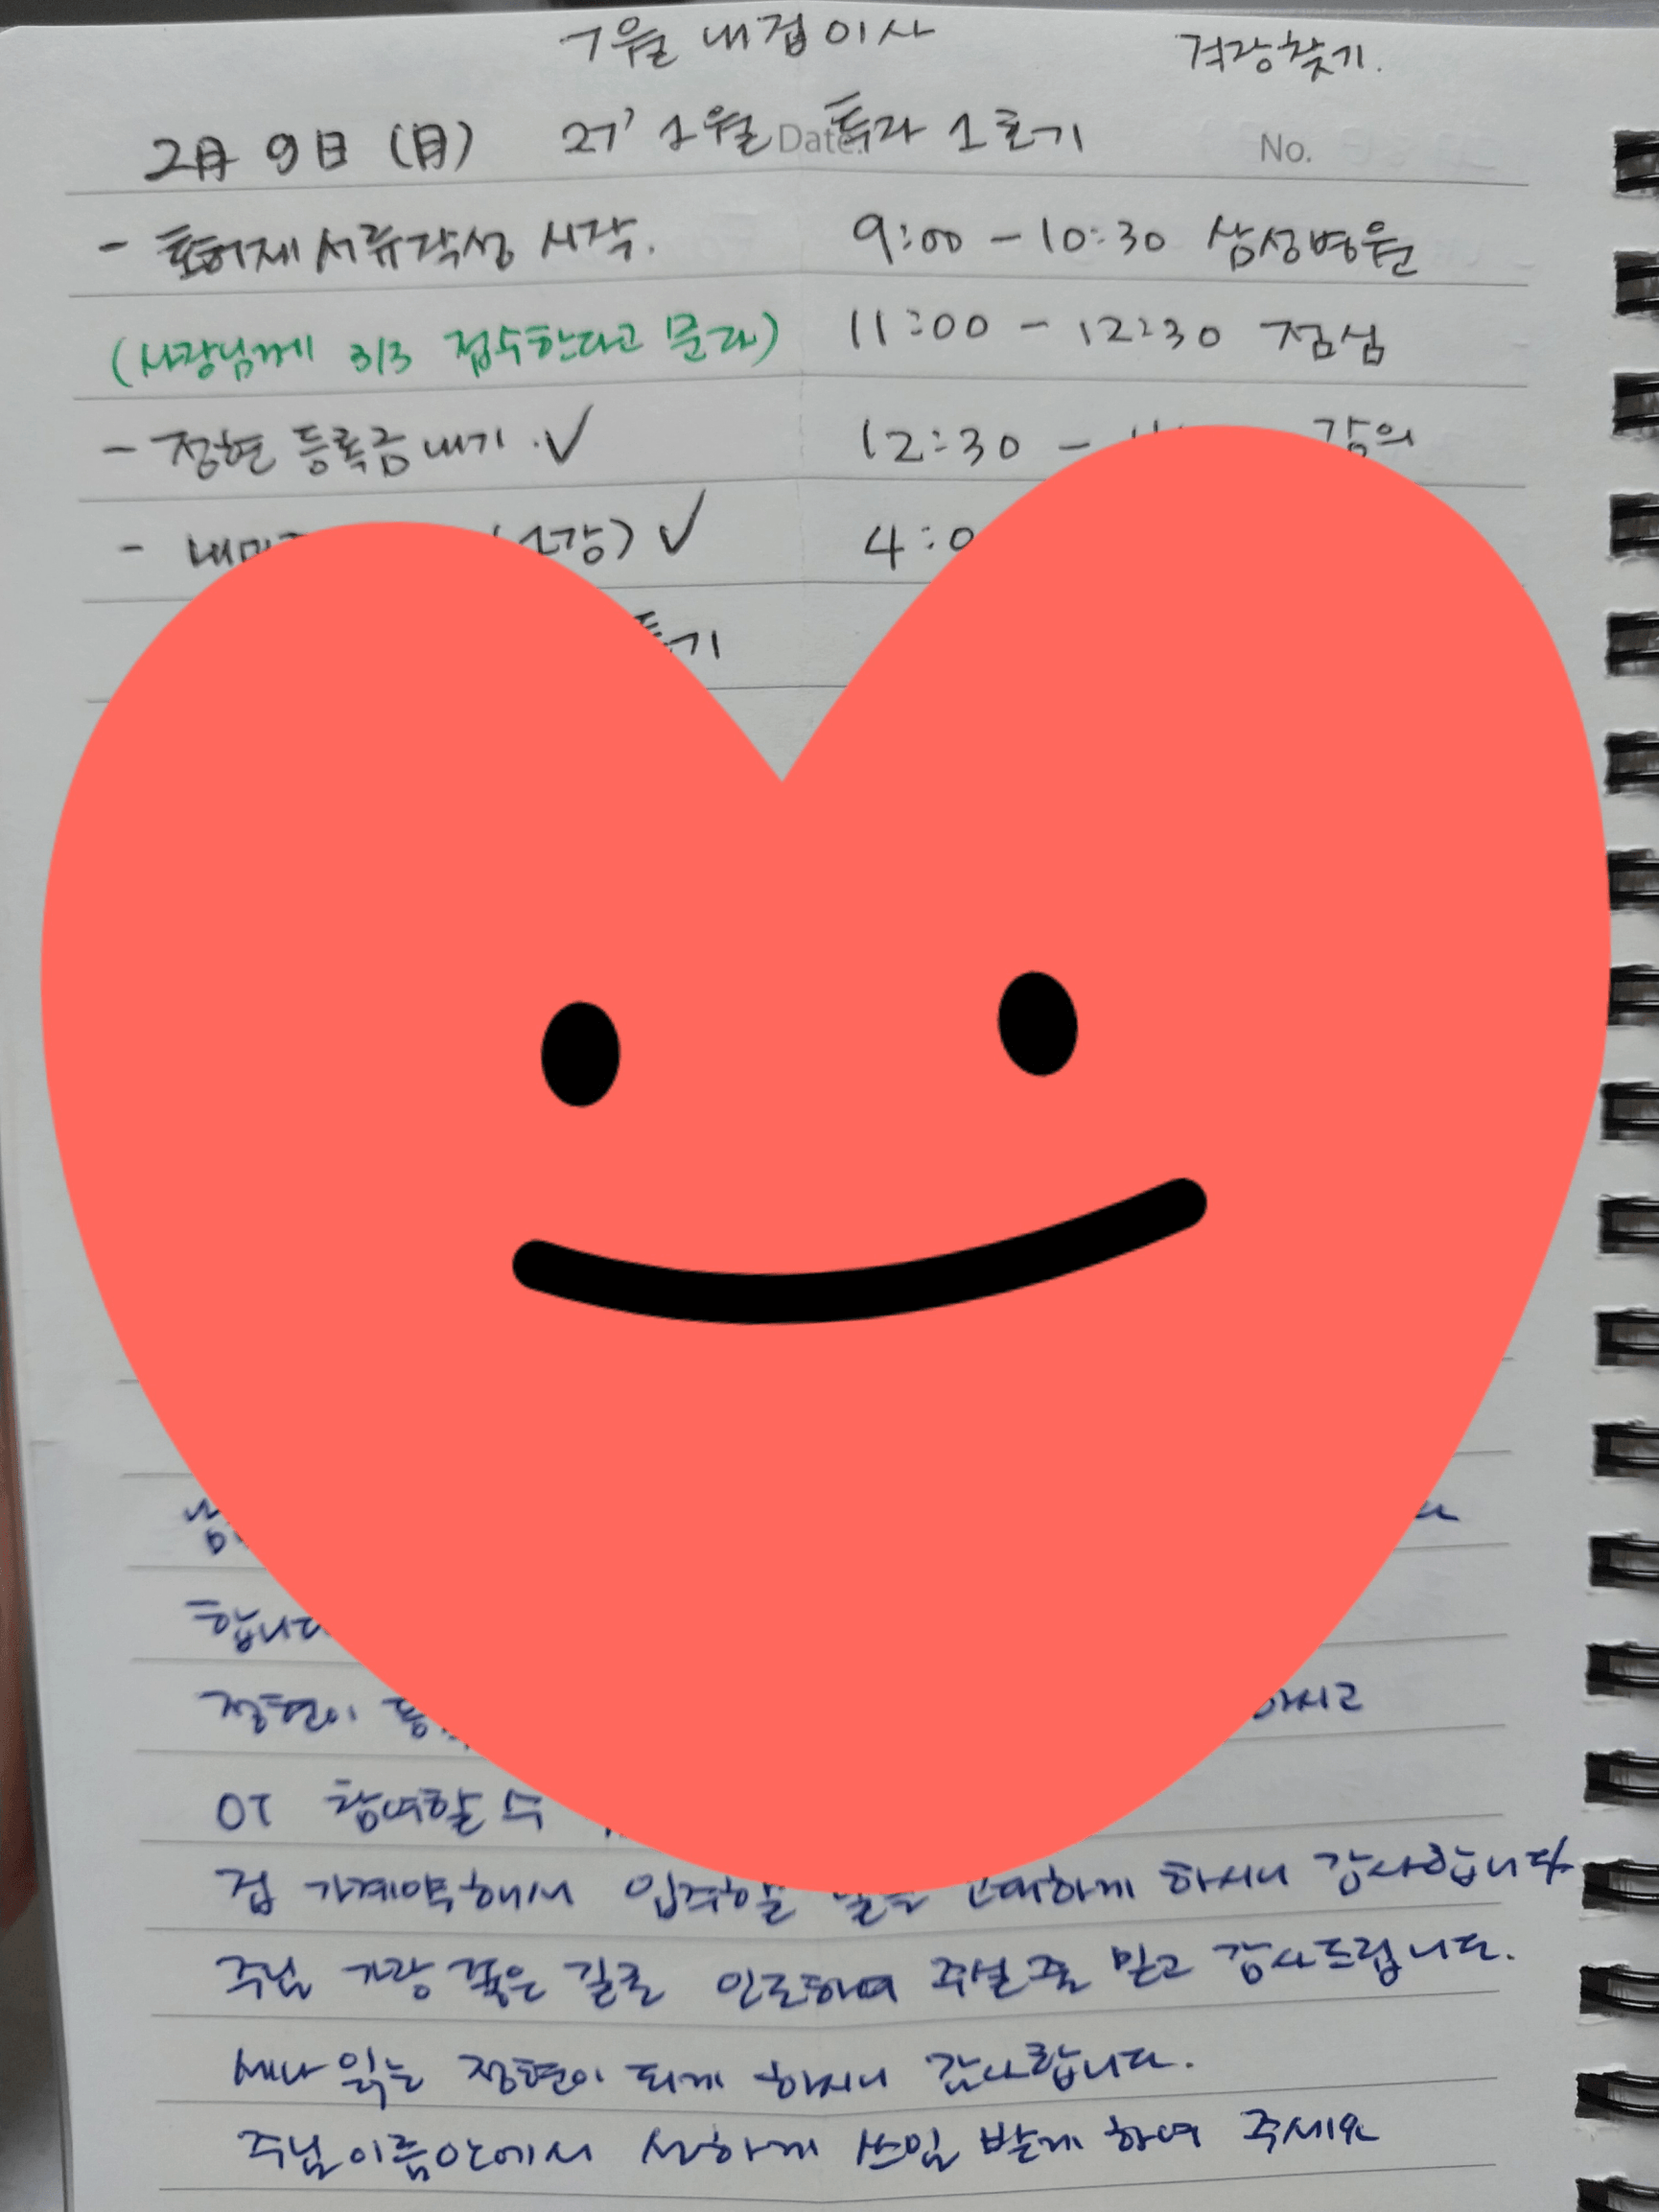 7월 내집이사
걱강찾기.
2月 9日 (月) 27' 1월 투자 1호기
Date. No.
- 토허제서류작성 시작.
9:00 - 10:30 삼성병원
(사장님께 3/3 접수한다고 문자)
11:00 - 12:30 점심
- 정현 등록금내기. ✓
12:30 - 강의
- 1강) ✓
4:0
기
합니다
정현이 하시고
OT 참여할 수
집 가계약해서 입주할 날을 고대하게 하시니 감사합니다
주님 가장 좋은 길로 인도하여 주실 줄 믿고 감사드립니다.
세나 읽는 정현이 되게 하시니 감사합니다.
주님 이름안에서 선하게 쓰임 받게 하여 주세요